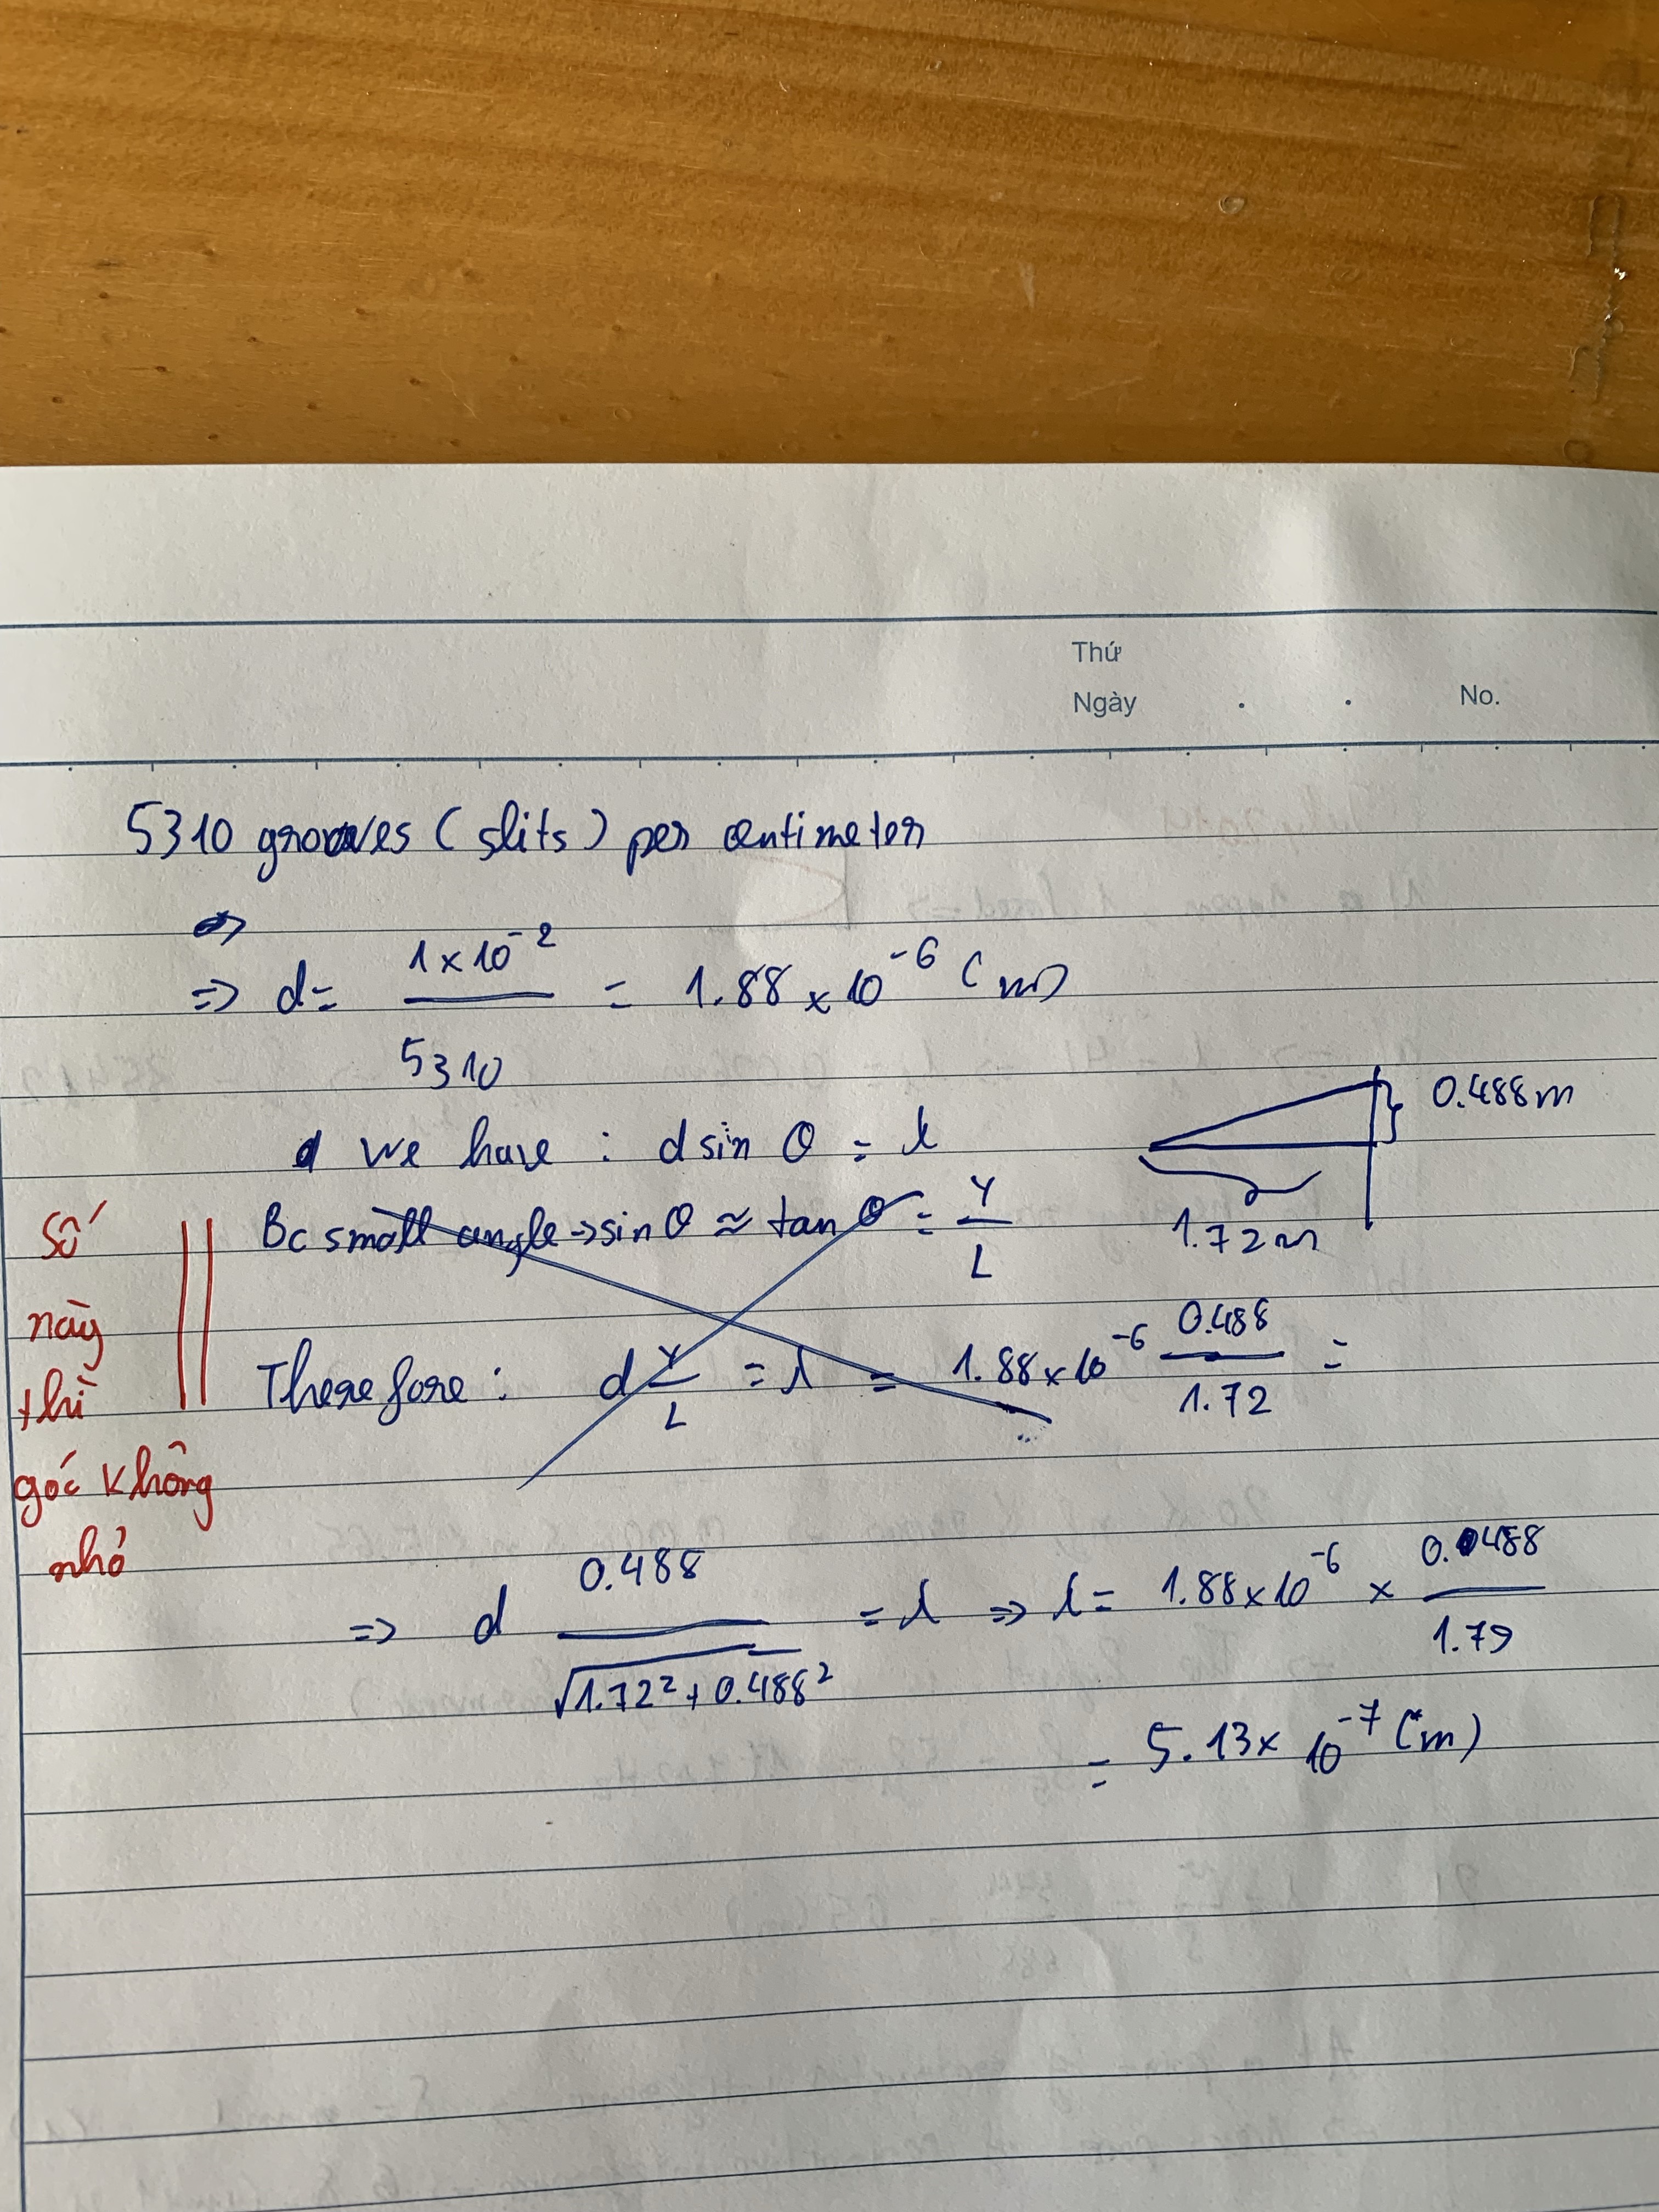 Thứ
Ngày . . No.
5310 grooves (slits) per centimeter
=> d = 1x10^-2 / 5310 = 1.88 x 10^-6 (m)
0.488m
1.72m
We have : d sin θ = λ
Bc small angle → sin θ ≈ tan θ = Y / L
Therefore : d Y / L = λ = 1.88 x 10^-6 0.488 / 1.72 =
Số
này
thì
góc không
nhỏ
=> d 0.488 / √1.72² + 0.488² = λ => λ = 1.88 x 10^-6 x 0.488 / 1.79
= 5.13 x 10^-7 (m)